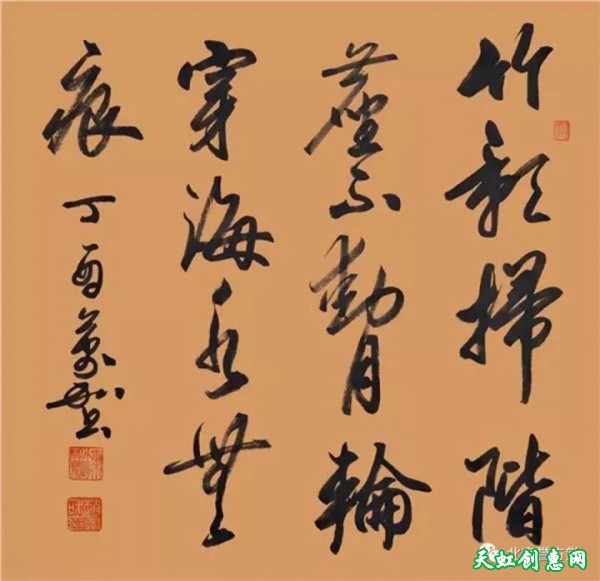 竹影掃階
塵不動月輪
穿海水無
痕 丁酉
天虹创惠网